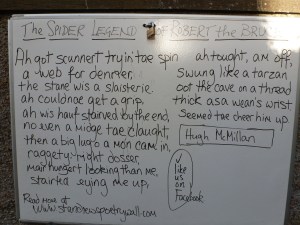 The SPIDER LEGEND OF ROBERT the BRUCE
Ah got scunnert tryin' tae spin
a web for denner,
the stane wis a slaisterie
ah couldnae get a grip,
ah wis hauf stairved by the end,
no even a midge tae claught,
then a big lug o a mon cam in,
raggety-might dosser,
mair hungert looking than me,
stairted eying me up,
ah tought, am off,
swung like a tarzan
oot the cave on a thread
thick as a wean's wrist
seemed tae cheer him up
Hugh McMillan
like
us
on
Facebook
Read more at
www.standrewspoetrywall.com